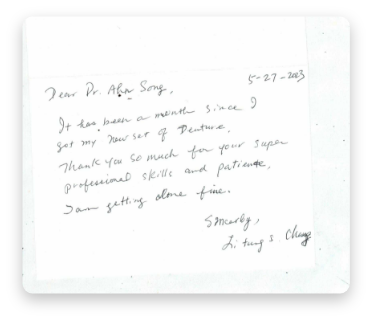 5-27-2023
Dear Dr. Ahn Song,
It has been a month since I
got my new set of Denture.
Thank you so much for your super
professional skills and patience,
I am getting alone fine.
Sincerely,
Li tung S. Chung